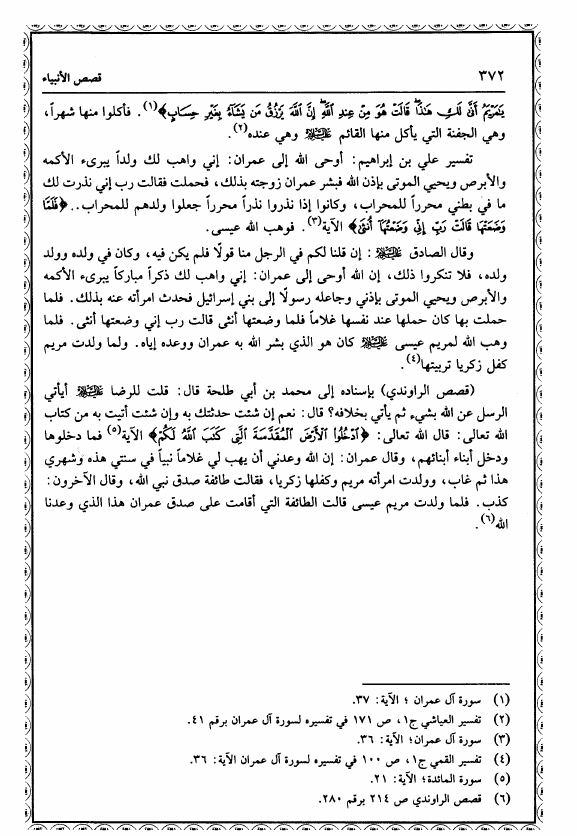 ٣٧٢
قصص الأنبياء
يَٰمَرْيَمُ أَنَّىٰ لَكِ هَٰذَا قَالَتْ هُوَ مِنْ عِندِ اللَّهِ إِنَّ اللَّهَ يَرْزُقُ مَن يَشَاءُ بِغَيْرِ حِسَابٍ﴾(١). فأكلوا منها شهراً،
وهي الجفنة التي يأكل منها القائم عليه السلام وهي عنده(٢).
تفسير علي بن إبراهيم: أوحى الله إلى عمران: إني واهب لك ولداً يبرىء الأكمه
والأبرص ويحيي الموتى بإذن الله فبشر عمران زوجته بذلك، فحملت فقالت رب إني نذرت لك
ما في بطني محرراً للمحراب، وكانوا إذا نذروا نذراً محرراً جعلوا ولدهم للمحراب.. ﴿فَلَمَّا
وَضَعَتْهَا قَالَتْ رَبِّ إِنِّي وَضَعْتُهَا أُنثَىٰ﴾ الآية(٣). فوهب الله عيسى.
وقال الصادق عليه السلام: إن قلنا لكم في الرجل منا قولًا فلم يكن فيه، وكان في ولده وولد
ولده، فلا تنكروا ذلك، إن الله أوحى إلى عمران: إني واهب لك ذكراً مباركاً يبرىء الأكمه
والأبرص ويحيي الموتى بإذني وجاعله رسولًا إلى بني إسرائيل فحدث امرأته عنه بذلك. فلما
حملت بها كان حملها عند نفسها غلاماً فلما وضعتها أنثى قالت رب إني وضعتها أنثى. فلما
وهب الله لمريم عيسى عليه السلام كان هو الذي بشر الله به عمران ووعده إياه. ولما ولدت مريم
كفل زكريا تربيتها(٤).
(قصص الراوندي) بإسناده إلى محمد بن أبي طلحة قال: قلت للرضا عليه السلام أيأتي
الرسل عن الله بشيء ثم يأتي بخلافه؟ قال: نعم إن شئت حدثتك به وإن شئت أتيت به من كتاب
الله تعالى: قال الله تعالى: ﴿ادْخُلُوا الْأَرْضَ الْمُقَدَّسَةَ الَّتِي كَتَبَ اللَّهُ لَكُمْ﴾ الآية(٥) فما دخلوها
ودخل أبناء أبنائهم، وقال عمران: إن الله وعدني أن يهب لي غلاماً نبياً في سنتي هذه وشهري
هذا ثم غاب، وولدت امرأته مريم وكفلها زكريا، فقالت طائفة صدق نبي الله، وقال الآخرون:
كذب. فلما ولدت مريم عيسى قالت الطائفة التي أقامت على صدق عمران هذا الذي وعدنا
الله(٦).
(١) سورة آل عمران ؛ الآية: ٣٧.
(٢) تفسير العياشي ج١، ص ١٧١ في تفسيره لسورة آل عمران برقم ٤١.
(٣) سورة آل عمران؛ الآية: ٣٦.
(٤) تفسير القمي ج١، ص ١٠٠ في تفسيره لسورة آل عمران الآية: ٣٦.
(٥) سورة المائدة؛ الآية: ٢١.
(٦) قصص الراوندي ص ٢١٤ برقم ٢٨٠.